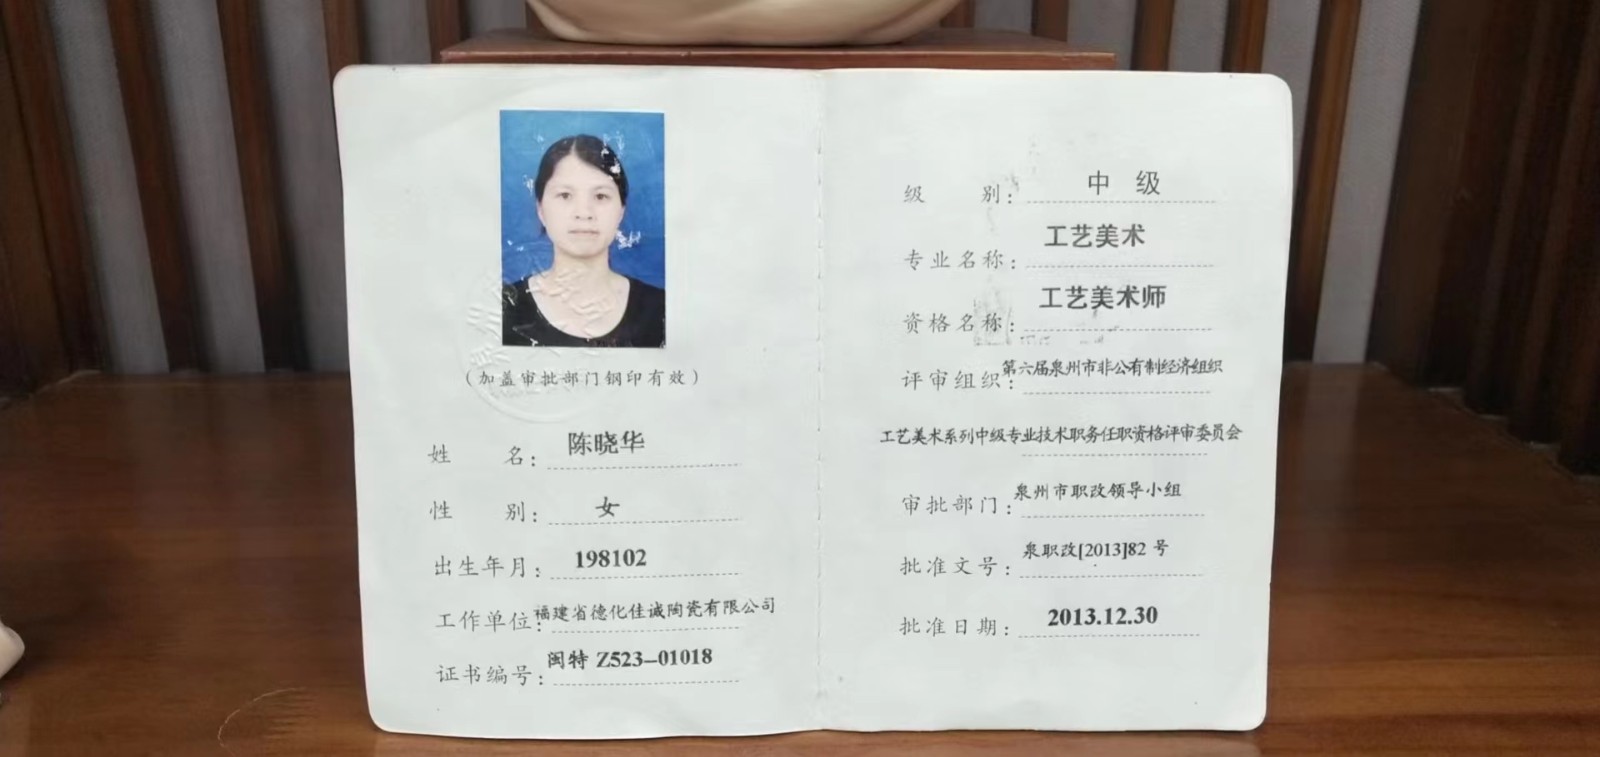 (加盖审批部门钢印有效)
姓 名: 陈晓华
性 别: 女
出生年月: 198102
工作单位: 福建省德化佳诚陶瓷有限公司
证书编号: 闽特 Z523-01018
级 别: 中 级
专业名称: 工艺美术
资格名称: 工艺美术师
评审组织: 第六届泉州市非公有制经济组织
工艺美术系列中级专业技术职务任职资格评审委员会
审批部门: 泉州市职改领导小组
批准文号: 泉职改[2013]82 号
批准日期: 2013.12.30